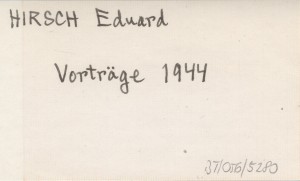 HIRSCH Eduard
Vorträge 1944
37/OTO/5280